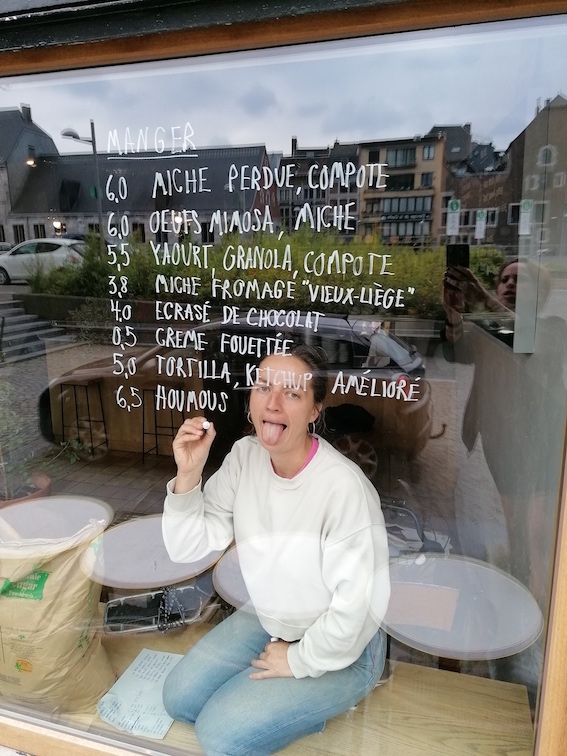 MANGER
6,0 MICHE PERDUE, COMPOTE
6,0 OEUFS MIMOSA, MICHE
5,5 YAOURT, GRANOLA, COMPOTE
3,8 MICHE FROMAGE "VIEUX-LIÈGE"
4,0 ECRASÉ DE CHOCOLAT
0,5 CREME FOUETTÉE
5,0 TORTILLA, KETCHUP AMÉLIORÉ
6,5 HOUMOUS